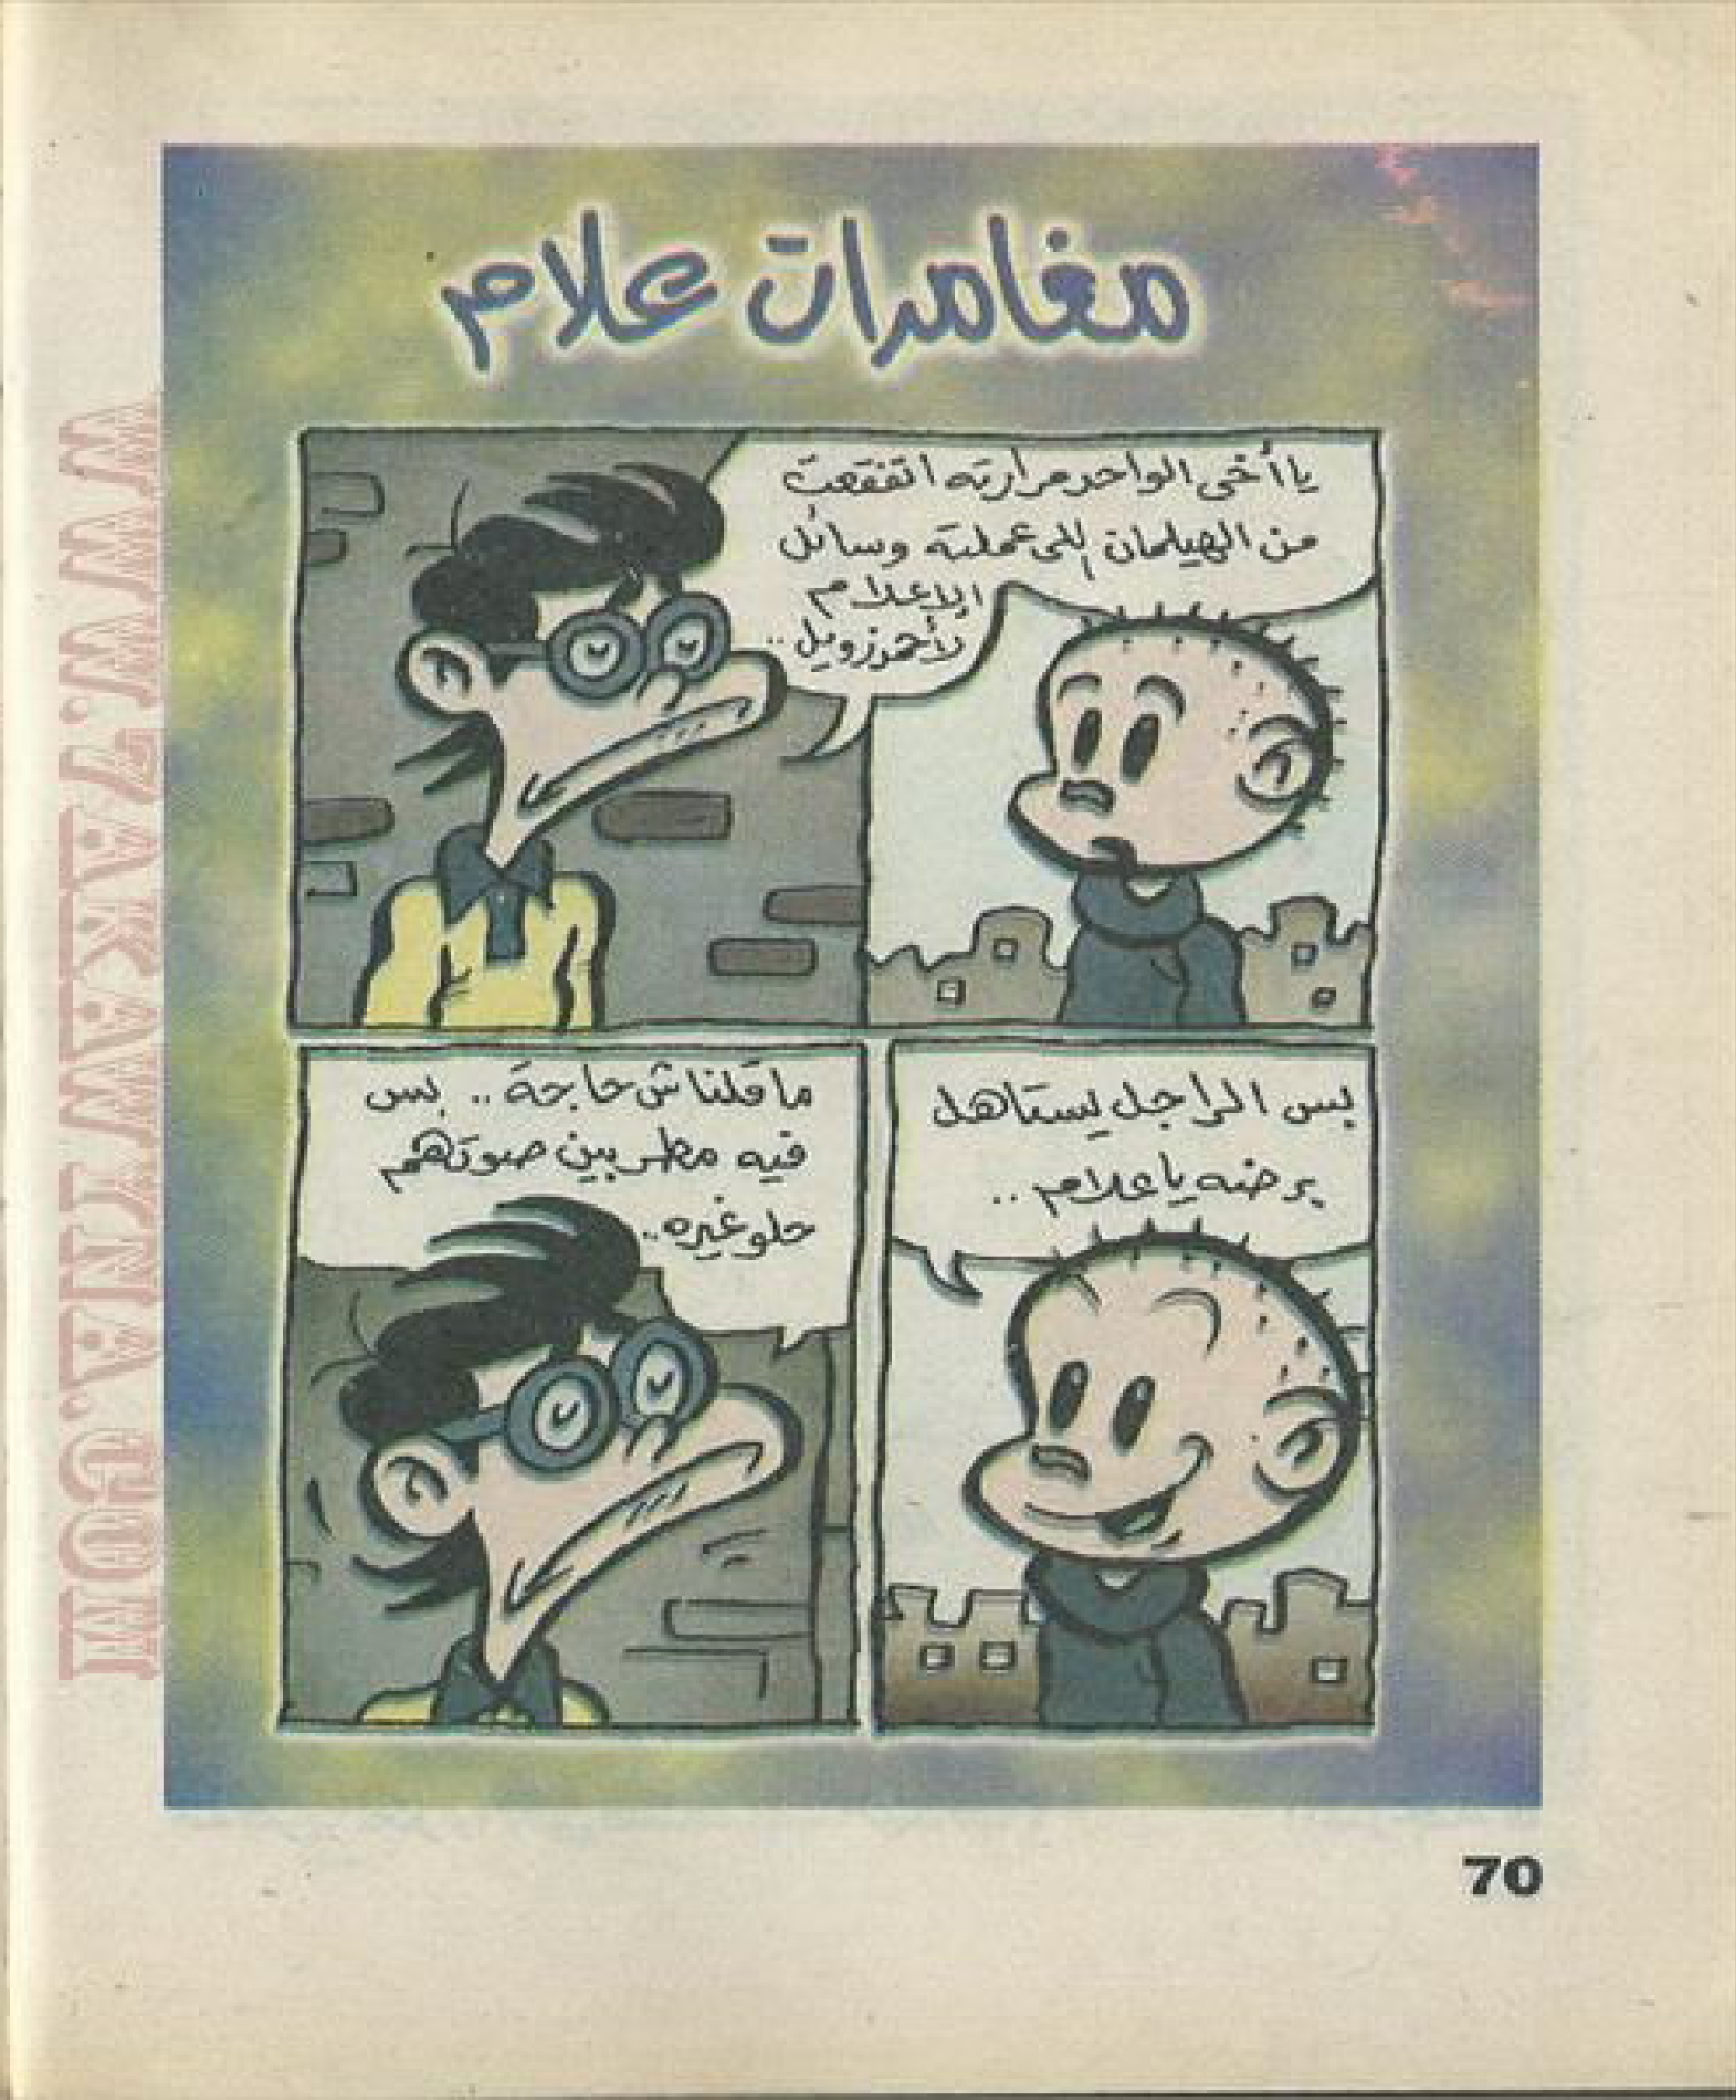 مغامرات علام
يا أخى الواحد مرارته اتفقعت
من الهيلمان اللى عملته وسائل
الإعلام
لأحمد زويل..
بس الراجل يستاهل
برضه يا علام..
ماقلناش حاجة.. بس
فيه مطربين صوتهم
حلو غيره..
70
WWW.7AKAWITNA.COM